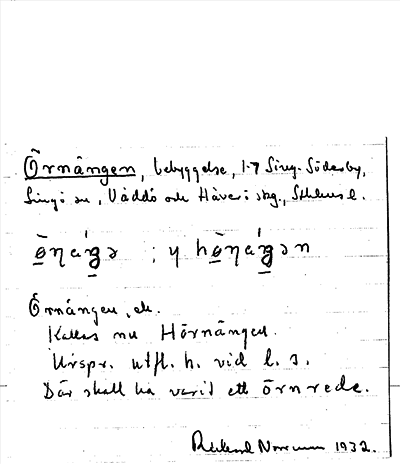 Örnängen, bebyggelse, 1-7 Sing. Söderby,
Singö sn, Väddö och Häverö skg., Sthlms l.
; y
Örnängen, ek.
Kallas nu Hörnängen.
Urspr. utfl. h. vid l. 3.
Där skall ha varit ett örnrede.
1932.